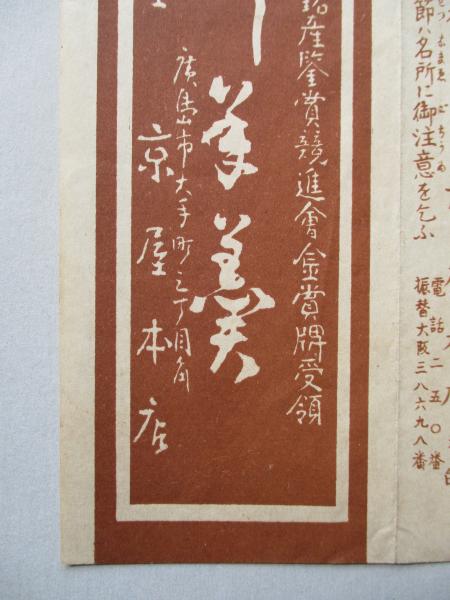 電話二五〇番
振替大阪三八六九八番
節ハ名所に御注意を乞ふ
銘産鑒賞競進會金賞牌受領
羊羹
廣島市大手町三丁目角
京屋本店